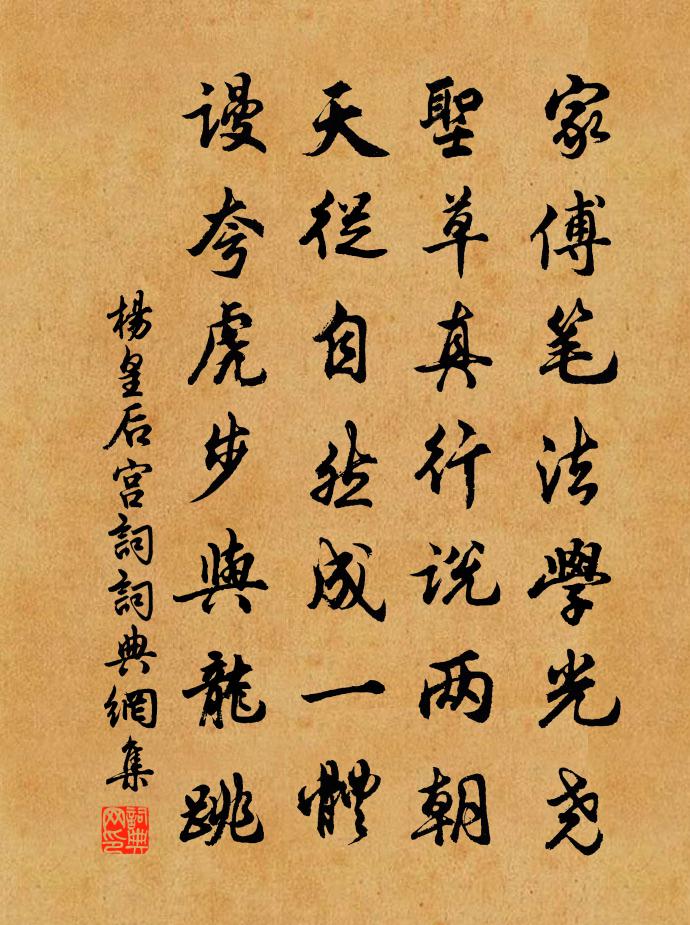 家傅笔法學光尧
聖草真行说两朝
天從自然成一體
谩夸虎步與龍跳
楊皇后宫詞詞典網集
詞典网印